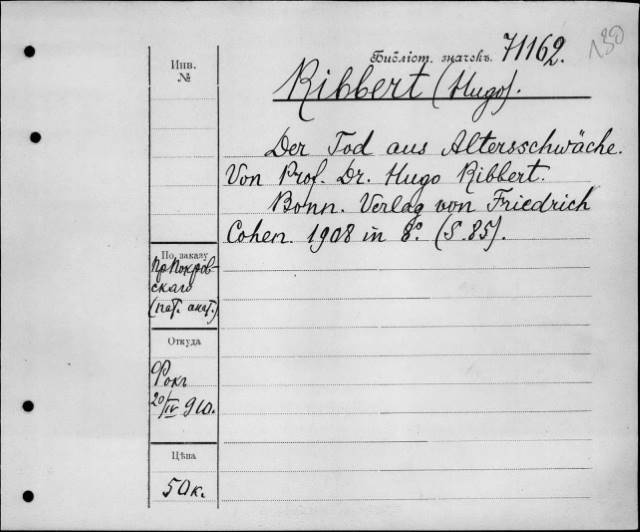 130
Библіот. значокъ. 71162.
Инв.
№
Ribbert (Hugo).
Der Tod aus Altersschwäche.
Von Prof. Dr. Hugo Ribbert.
Bonn. Verlag von Friedrich
Cohen. 1908 in 8°. (S. 85).
По заказу
Пр Покров-
скаго
(пат. анат.)
Откуда
Фокъ
20/IV 910.
Цѣна
50 к.